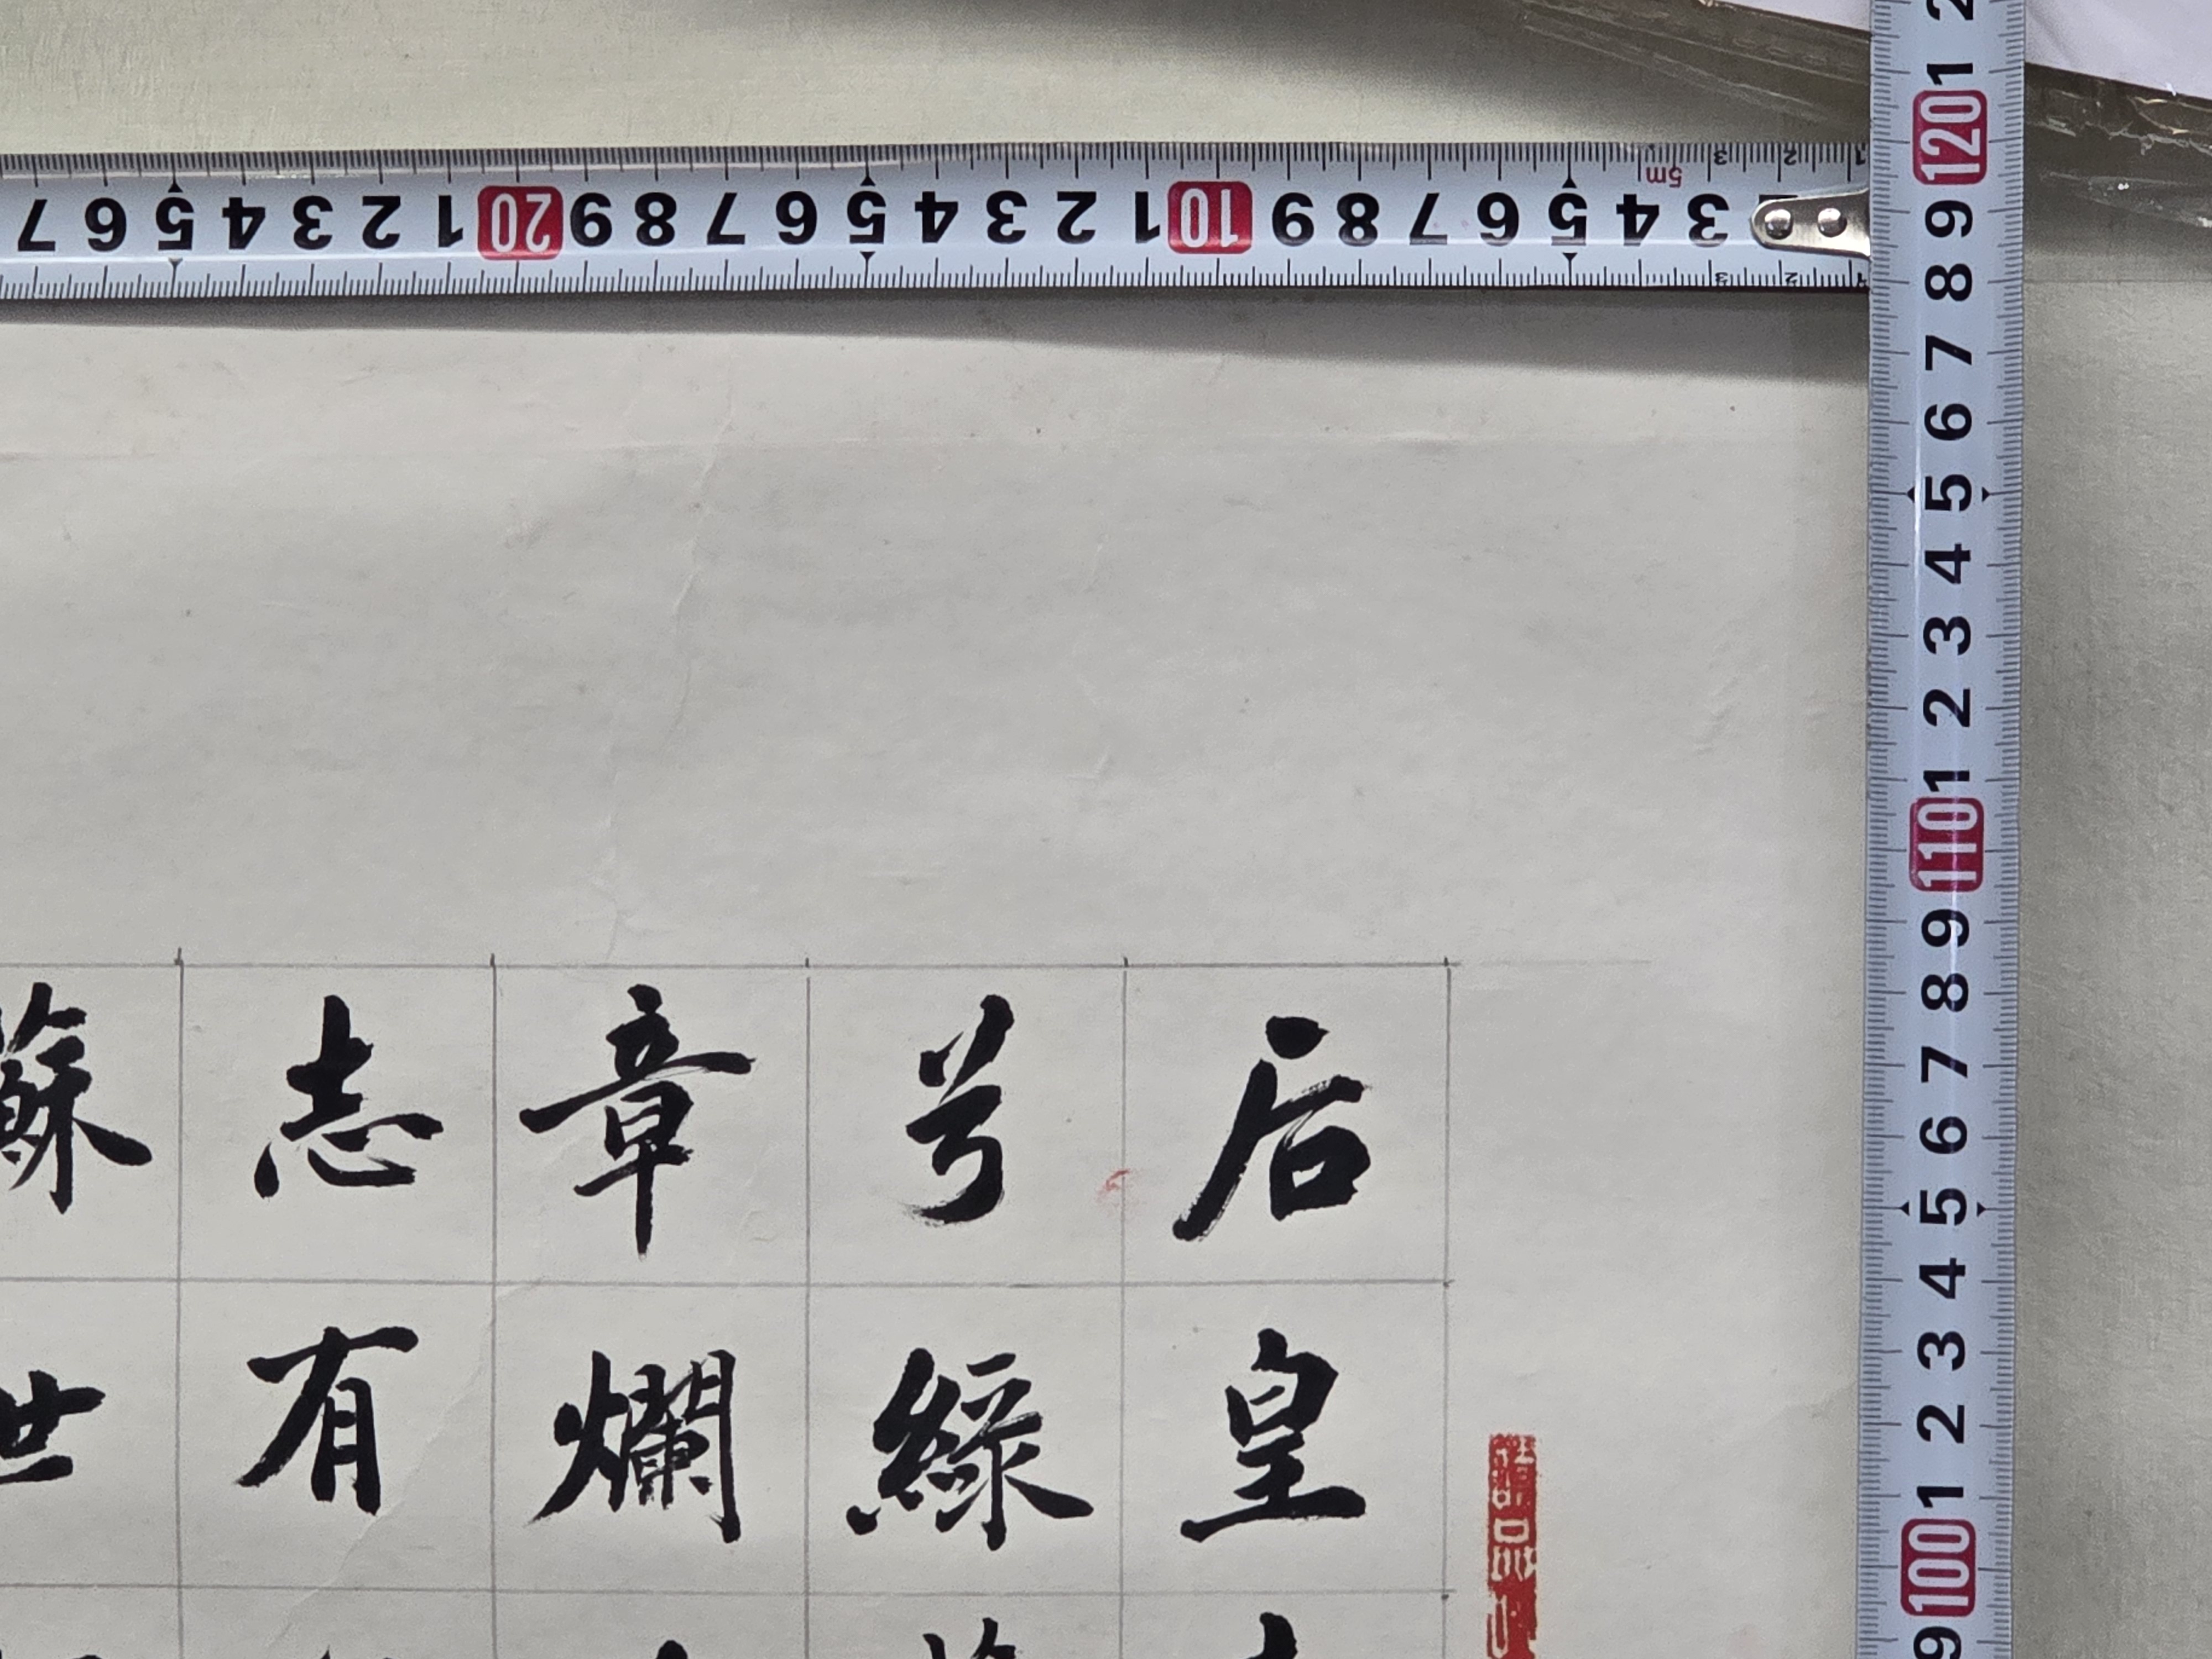 后皇
兮綠
章爛
志有
蘇世
3 4 5 6 7 8 9 10 1 2 3 4 5 6 7 8 9 20 1 2 3 4 5 6 7
5m
9 100 1 2 3 4 5 6 7 8 9 110 1 2 3 4 5 6 7 8 9 120 1 2